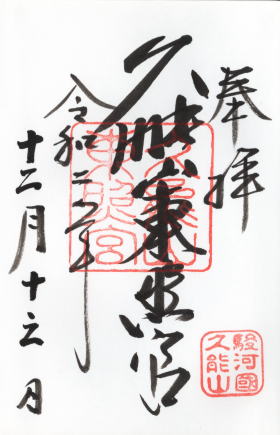 奉拝
久能山東照宮
令和二年
十二月十三日
駿河國
久能山